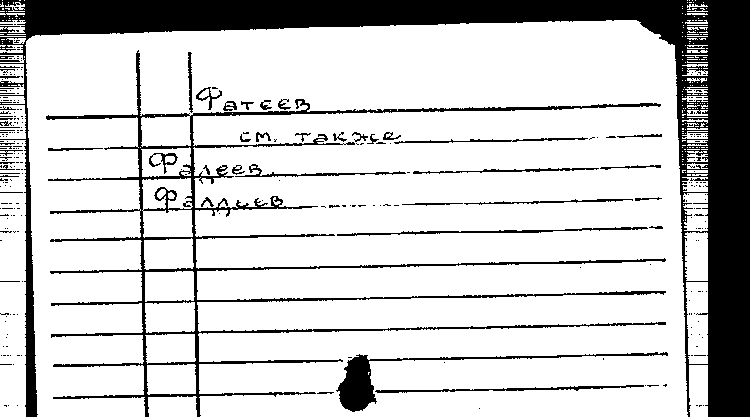 Фатеев
см. также
Фадеев
Фаддеев